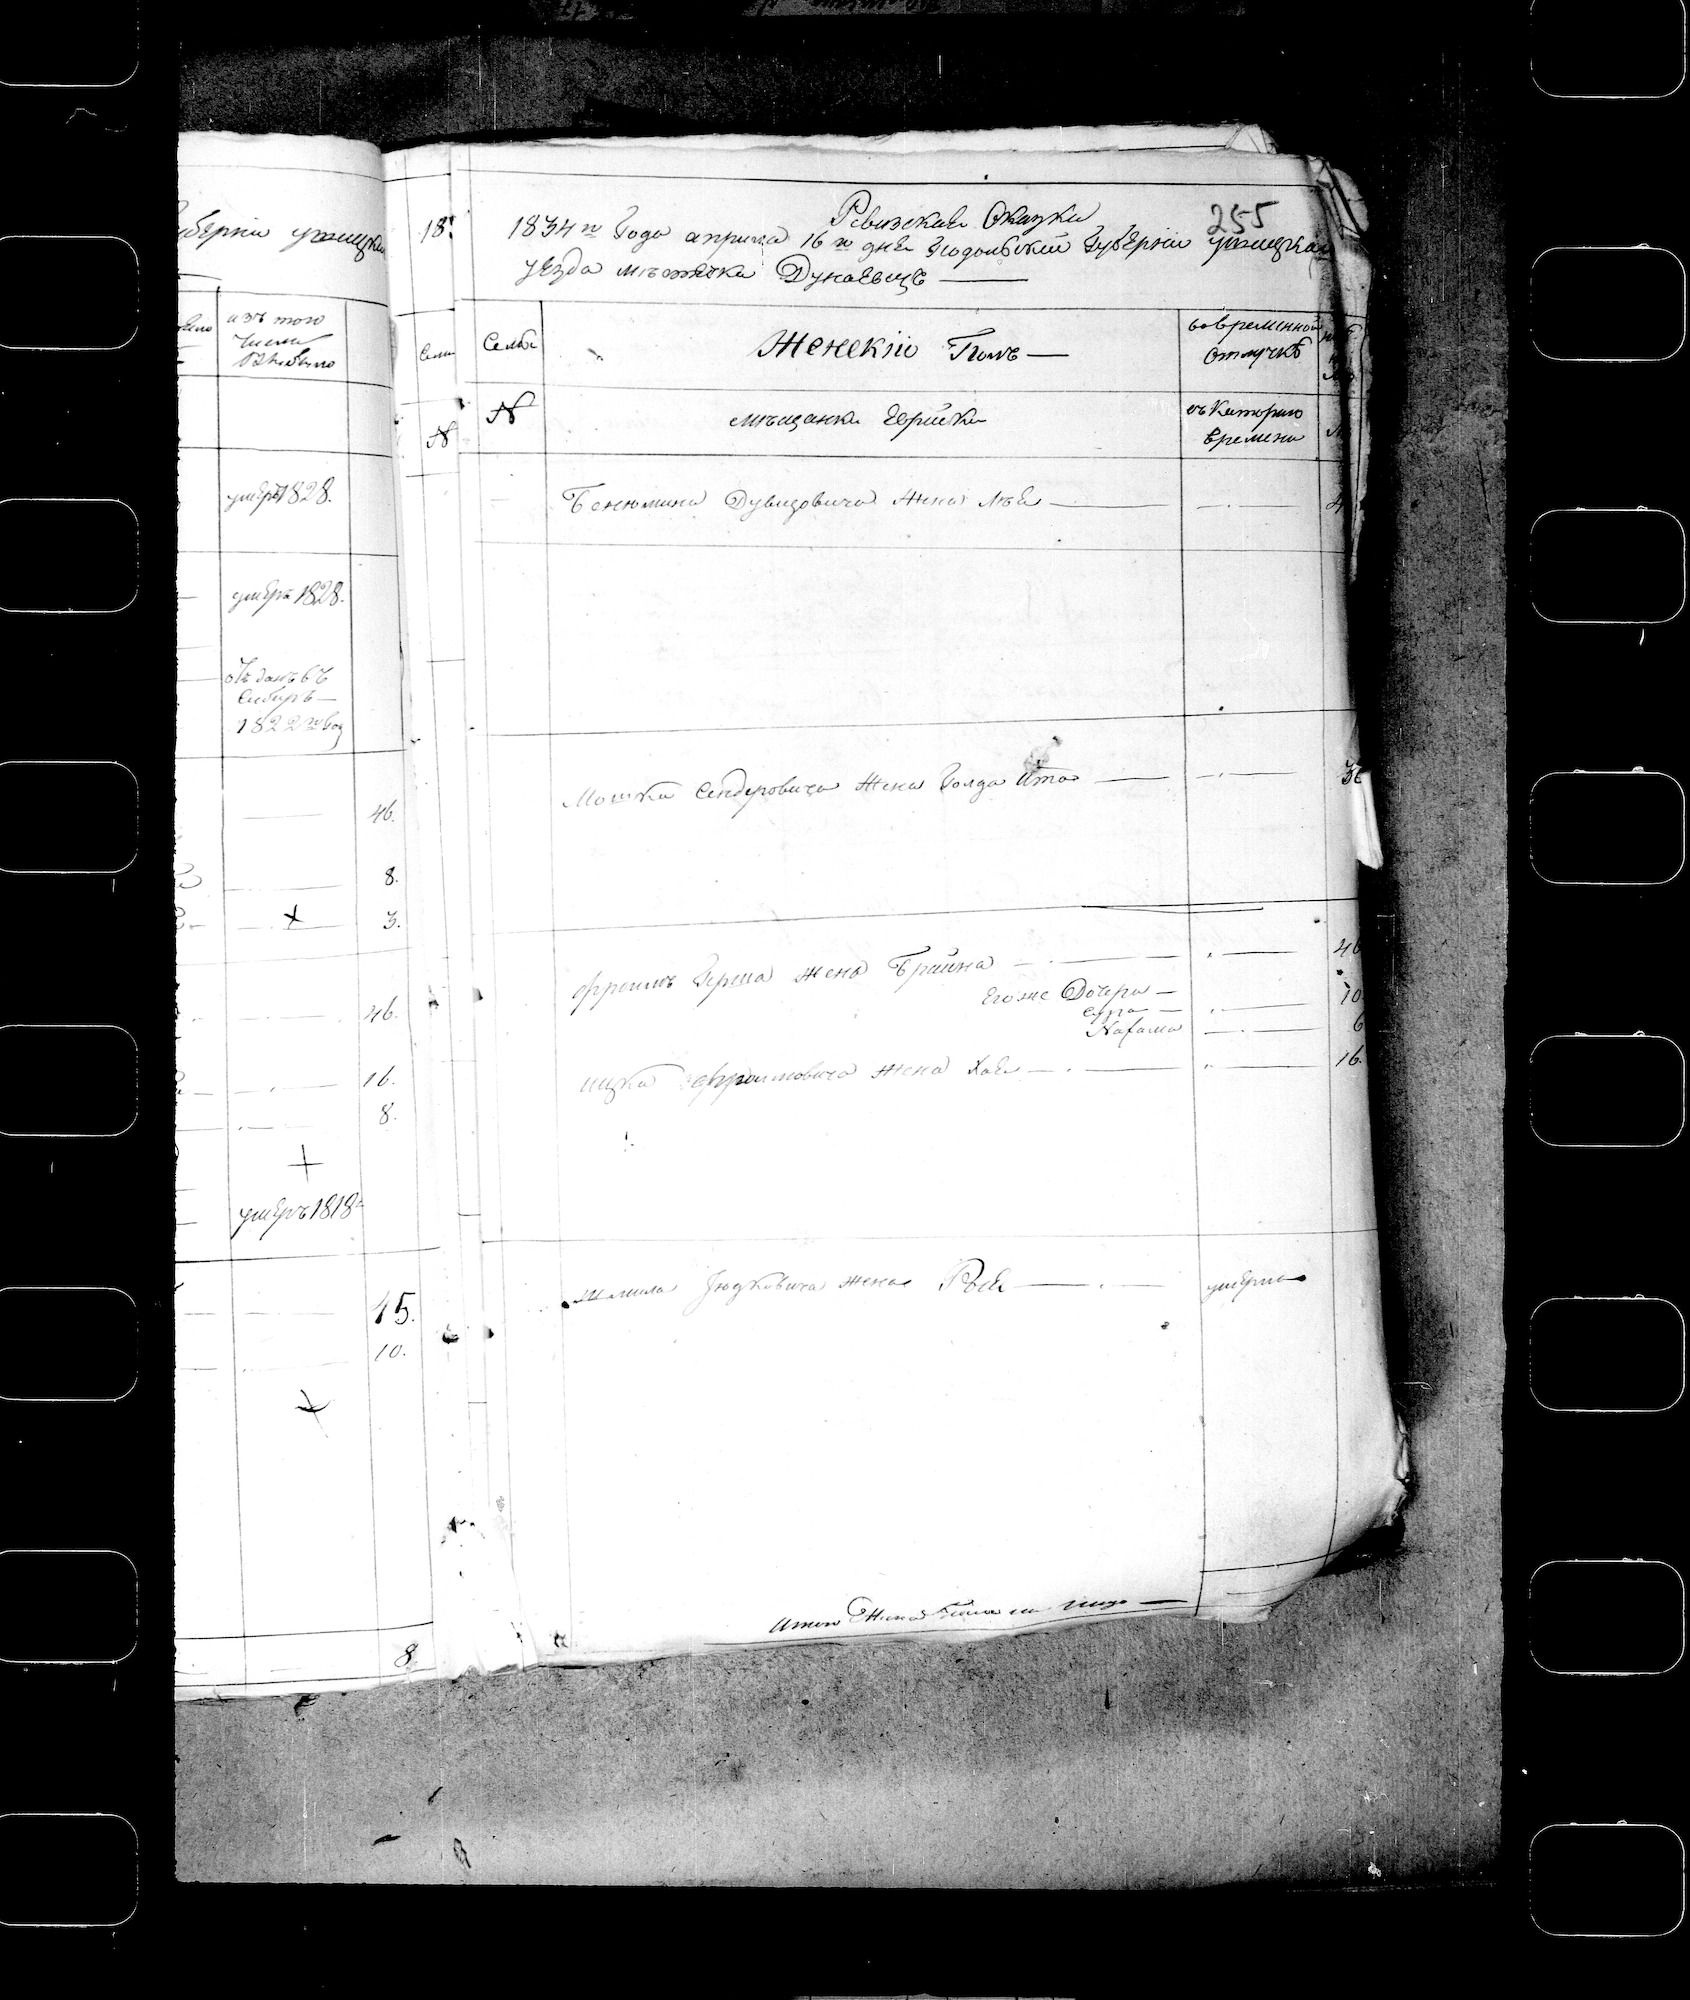 губернии ушицка
изъ того
числа
выбыло
умеръ 1828.
умеръ 1828.
отъданъ въ
Сибиръ —
1822 го год
46.
8.
3.
46.
16.
8.
умеръ 1818
45.
10.
8
18
Семьи
№
255
Ревизская Сказка
1834 го Года априля 16 го дня Подольской Губернии ушицкаго
уезда местечка Дунаевецъ —
Семьи
Женский Полъ —
во временной
отлучкѣ
№
мѣщанки Еврейки
съ Котораго
времени
Бенюмина Дувидовича Жена Лея
Мошка Сендеровича Жена Голда Ита
36
Фроимъ Герша жена Брайна
46
Его же Дочери —
10
сура —
Нахама
6
ицка Фроимовича жена Хая
16.
Шмила Юдковича жена Рейя
умерла
Итого Женска Пола на лицо —